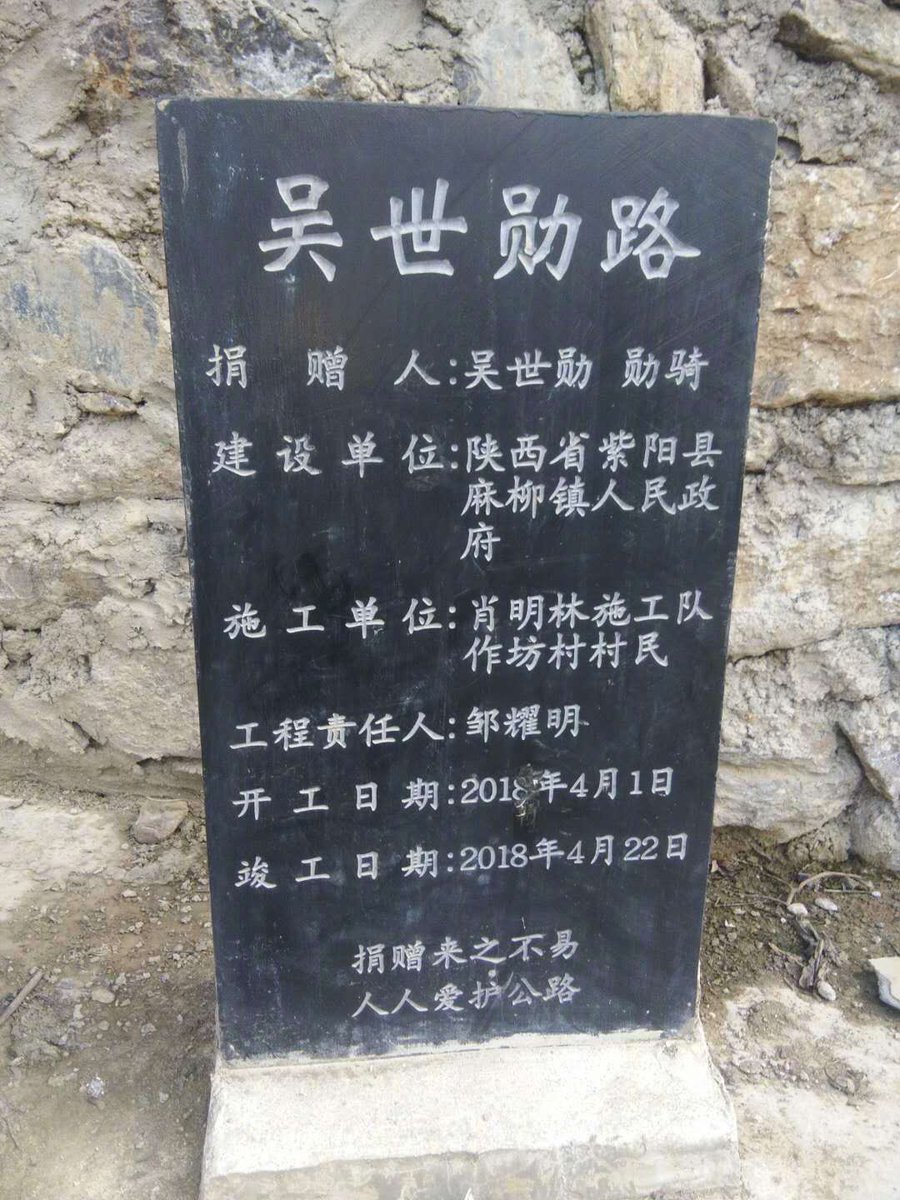 吴世勋路
捐赠人:吴世勋 勋骑
建设单位:陕西省紫阳县
麻柳镇人民政
府
施工单位:肖明林施工队
作坊村村民
工程责任人:邹耀明
开工日期:2018年4月1日
竣工日期:2018年4月22日
捐赠来之不易
人人爱护公路